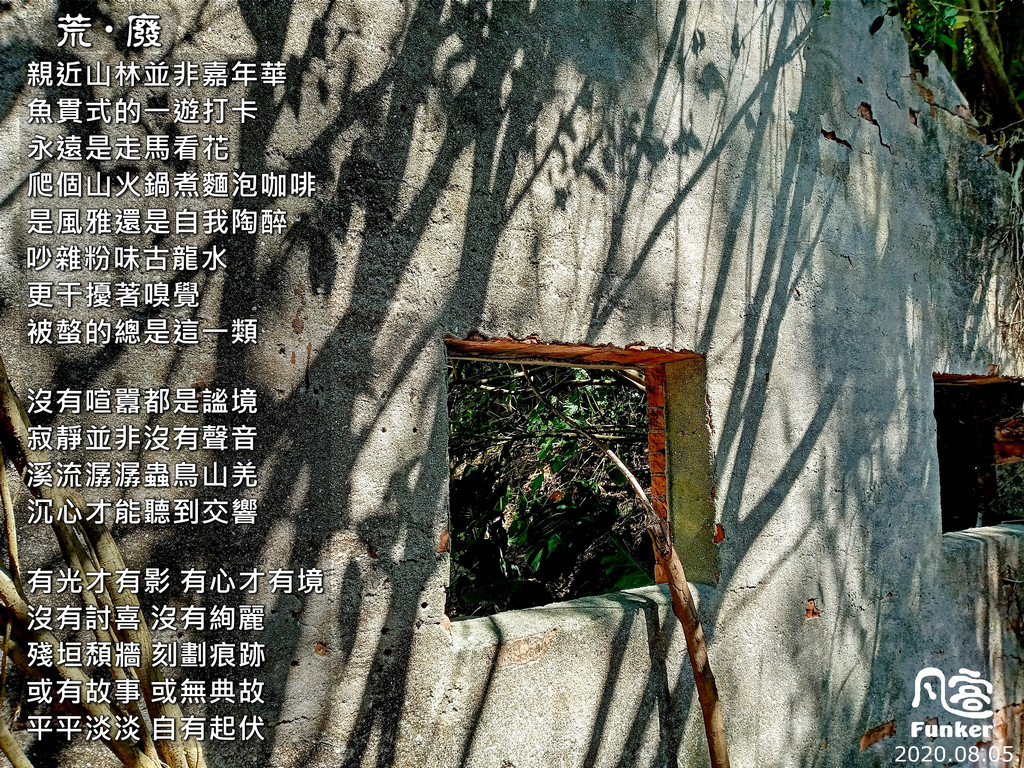 荒·廢
親近山林並非嘉年華
魚貫式的一遊打卡
永遠是走馬看花
爬個山火鍋煮麵泡咖啡
是風雅還是自我陶醉
吵雜粉味古龍水
更干擾著嗅覺
被螫的總是這一類
沒有喧囂都是謐境
寂靜並非沒有聲音
溪流潺潺蟲鳥山羌
沉心才能聽到交響
有光才有影 有心才有境
沒有討喜 沒有絢麗
殘垣頹牆 刻劃痕跡
或有故事 或無典故
平平淡淡 自有起伏
凡客
Funker
2020.08.05